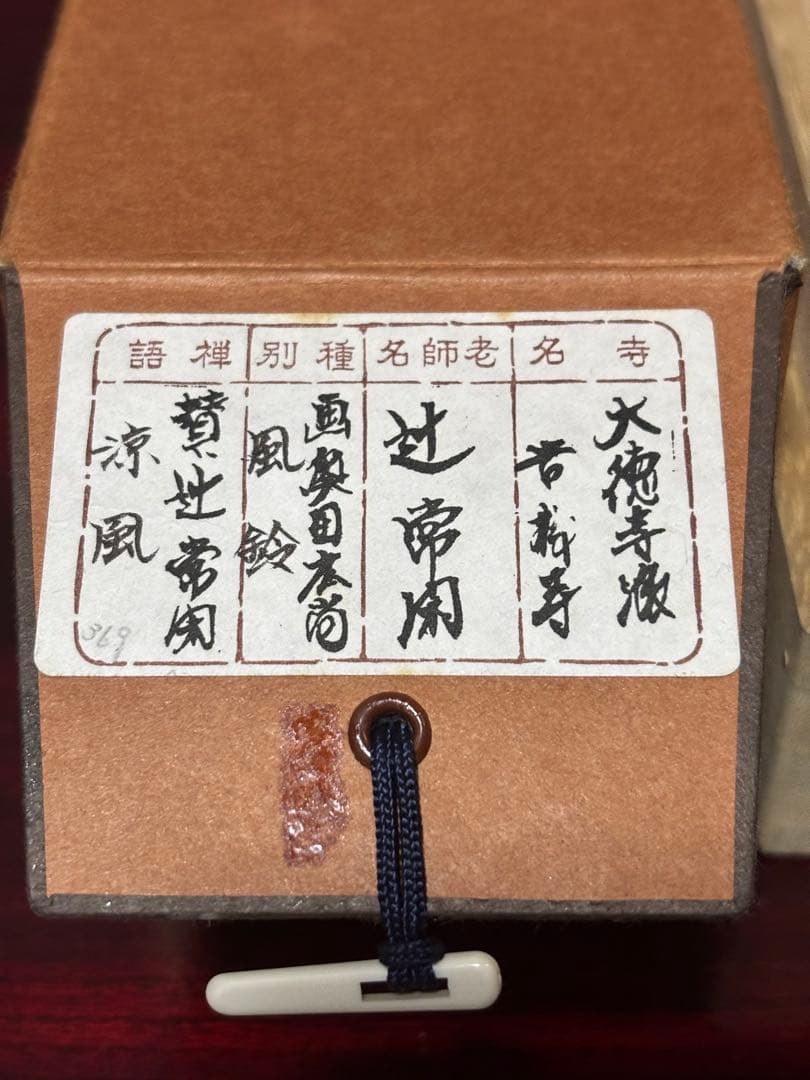 寺名
大徳寺派
吉祥寺
老師名
辻常閑
種別
画奥田
風鈴
禅語
賛辻常閑
涼風
369